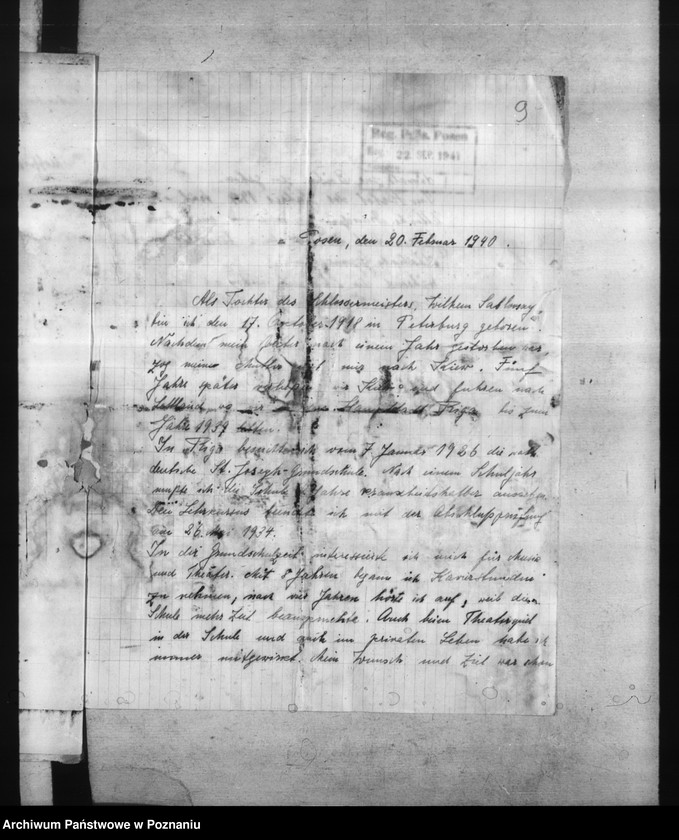 9
Reg. Präs. Posen
22. SEP. 1941
Posen, den 20. Februar 1940.
Als Tochter des Schlossermeisters, Wilhelm
bin ich den 17. 1918 in Petersburg geboren.
Nachdem mein Vater nach einem Jahr gestorben war
zog meine Mutter mit mir nach Kiew. Fünf
Jahre später wir Kiew und fuhren nach
Lettland, wo wir in Hauptstadt, Riga bis zum
Jahre 1939 lebten.
In Riga besuchte ich vom 7 Januar 1926 die
deutsche St. Joseph-Grundschule. Nach einem Schuljahr
mußte ich die Schule Jahre krankheitshalber aussetzen.
Den Lehrkursus beendete ich mit der Abschlussprüfung
am 26 Mai 1934.
In der Grundschulzeit interessierte ich mich für Musik
und Theater. Mit 8 Jahren begann ich Klavierstunden
zu nehmen, nach vier Jahren hörte ich auf, weil die
Schule mehr Zeit beanspruchte. Auch beim Theaterspiel
in der Schule und auch im privaten Leben habe ich
immer mitgewirkt. Mein Wunsch und Ziel war schon
Archiwum Państwowe w Poznaniu